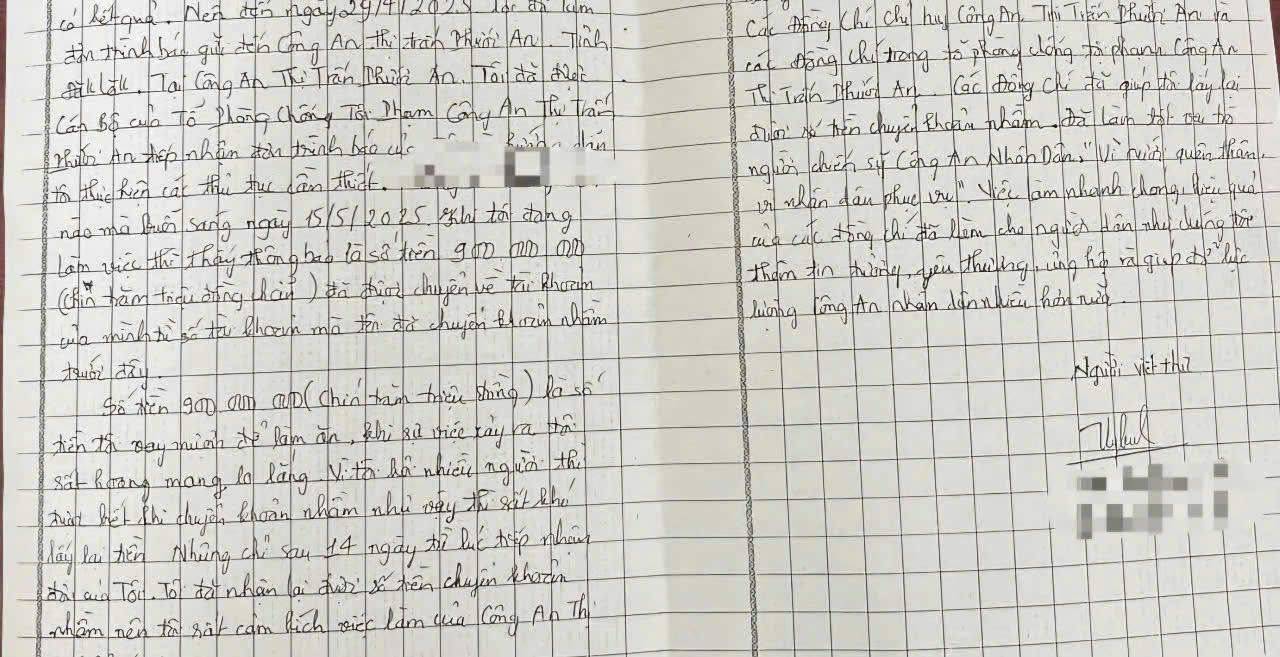 có kết quả. Nên đến ngày 29/4/2025 tôi đã làm
đơn trình báo gửi đến Công An thị trấn Phước An. Tỉnh
Đắk Lắk. Tại Công An Thị Trấn Phước An. Tôi đã được
Cán Bộ của Tổ Phòng Chống Tội Phạm Công An Thị Trấn
Phước An tiếp nhận đơn trình báo của hướng dẫn
tôi thực hiện các thủ tục cần thiết.
nào mà buổi sang ngày 15/5/2025. Khi tôi đang
làm việc thì thấy thông báo là số tiền 900 000 000
(chín trăm triệu đồng chẵn) đã được chuyển về tài khoản
của mình từ số tài khoản mà tôi đã chuyển khoản nhầm
trước đây.
Số tiền 900 000 000 (chín trăm triệu đồng) là số
tiền tôi vay mượn để làm ăn, khi sự việc xảy ra tôi
rất hoang mang, lo lắng. Vì tôi hỏi nhiều người thì
được biết khi chuyển khoản nhầm như vậy thì rất khó
lấy lại tiền. Nhưng chỉ sau 14 ngày từ lúc tiếp nhận
đơn của Tôi. Tôi đã nhận lại được số tiền chuyển khoản
nhầm nên tôi rất cảm kích việc làm của Công An Thị
Các Đồng Chí chỉ huy Công An. Thị Trấn Phước An và
các Đồng chí trong tổ phòng chống tội phạm Công An
Thị Trấn Phước An. Các Đồng Chí đã giúp tôi lấy lại
được số tiền chuyển khoản nhầm. Đã làm tốt vai trò
người chiến sỹ Công An Nhân Dân, "Vì nước quên thân,
vì nhân dân phục vụ". Việc làm nhanh chóng, hiệu quả
của các đồng chí đã làm cho người dân như chúng tôi
thêm tin tưởng, yêu thương, ủng hộ và giúp đỡ lực
lượng Công An nhân dân nhiều hơn nữa.
Người viết thư